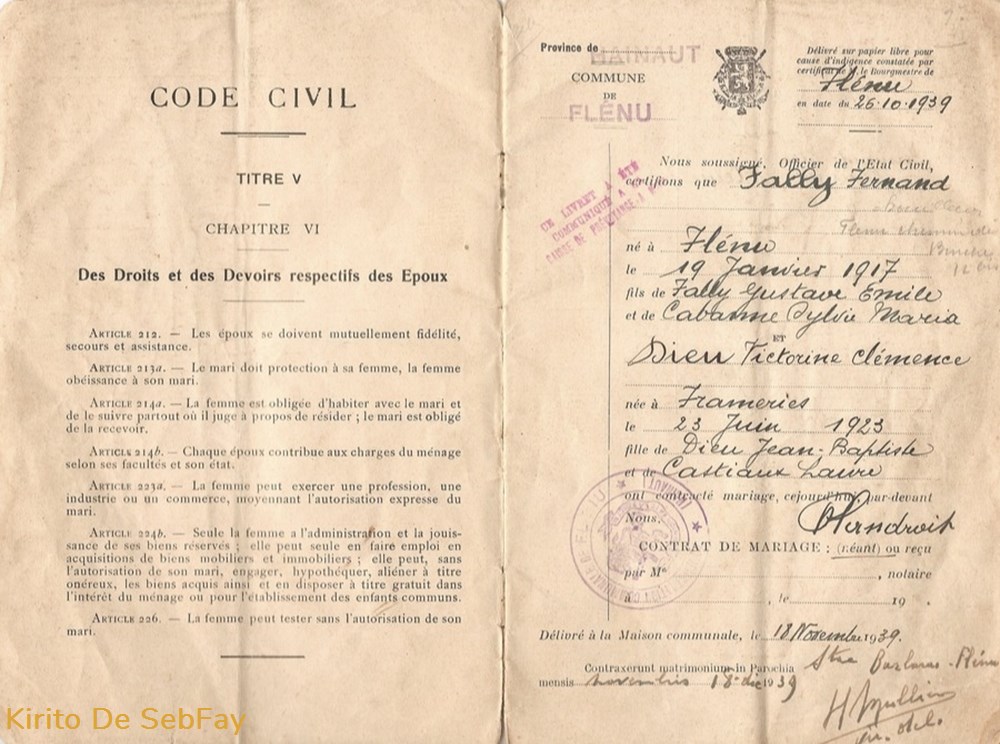 CODE CIVIL
TITRE V
CHAPITRE VI
Des Droits et des Devoirs respectifs des Epoux
ARTICLE 212. — Les époux se doivent mutuellement fidélité,
secours et assistance.
ARTICLE 213a. — Le mari doit protection à sa femme, la femme
obéissance à son mari.
ARTICLE 214a. — La femme est obligée d'habiter avec le mari et
de le suivre partout où il juge à propos de résider ; le mari est obligé
de la recevoir.
ARTICLE 214b. — Chaque époux contribue aux charges du ménage
selon ses facultés et son état.
ARTICLE 223a. — La femme peut exercer une profession, une
industrie ou un commerce, moyennant l'autorisation expresse du
mari.
ARTICLE 224b. — Seule la femme a l'administration et la jouis-
sance de ses biens réservés ; elle peut seule en faire emploi en
acquisitions de biens mobiliers et immobiliers ; elle peut, sans
l'autorisation de son mari, engager, hypothéquer, aliéner à titre
onéreux, les biens acquis ainsi et en disposer à titre gratuit dans
l'intérêt du ménage ou pour l'établissement des enfants communs.
ARTICLE 226. — La femme peut tester sans l'autorisation de son
mari.
Kirito De SebFay
Province de HAINAUT
COMMUNE
DE
FLÉNU
Délivré sur papier libre pour
cause d'indigence constatée par
certificat de M. le Bourgmestre de
Flénu
en date du 26-10-1939
CE LIVRET A ÉTÉ
COMMUNIQUÉ A
Nous soussigné, Officier de l'Etat Civil,
certifions que Fally Fernand
né à Flénu
le 19 Janvier 1917
fils de Fally Gustave Emile
et de Cabanne Sylvie Maria
ET
Dieu Victorine Clémence
née à Frameries
le 23 Juin 1923
fille de Dieu Jean-Baptiste
et de Castiaux Laure
ont contracté mariage, cejourd'hui, par-devant
Nous.
CONTRAT DE MARIAGE : (néant) ou reçu
par Me , notaire
à , le 19 .
Délivré à la Maison communale, le 18 Novembre 1939.
Contraxerunt matrimonium in Parochia
mensis novembris 18 die 1939